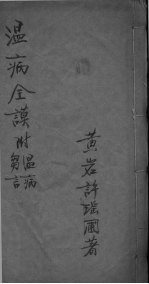 温病全謨附温病芻言
黄岩許瑞圃著